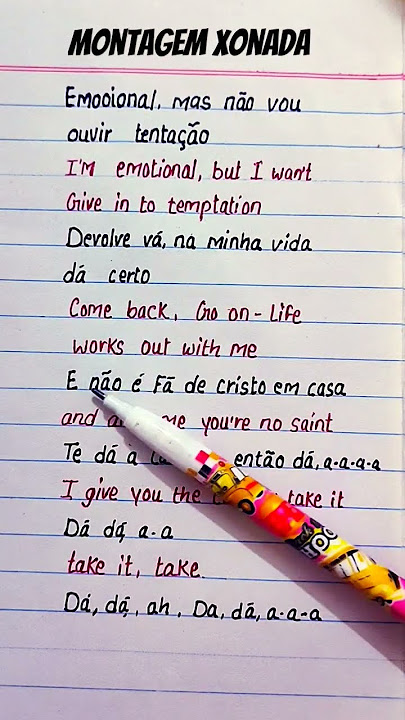 MONTAGEM XONADA
Emooional, mas não vou
ouvir tentação
I'm emotional, but I wan't
Give in to temptation
Devolve vá, na minha vida
dá certo
Come back, Go on - Life
works out with me
E não é Fã de cristo em casa
and me you're no saint
Te dá à então dá, a-a-a-a
I give you the take it
Dá dá, a-a
take it, take
Dá, dá, ah, Da, dá, a-a-a